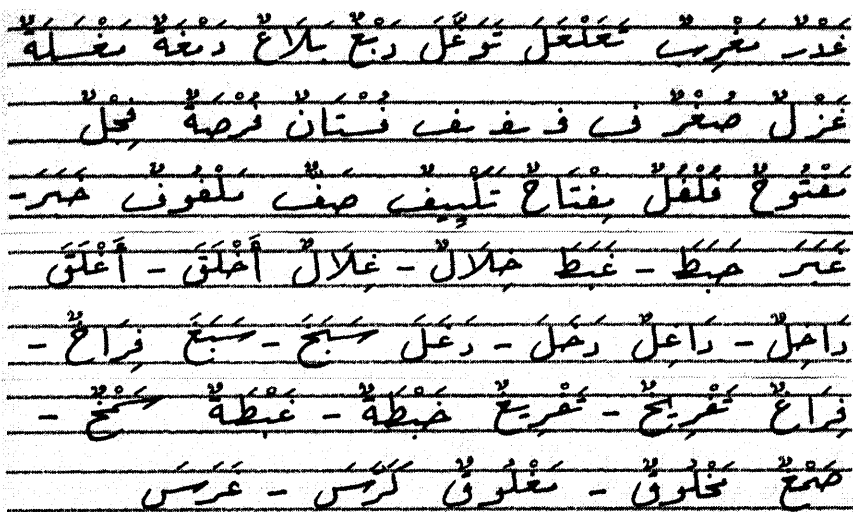 غَدْرٌ مَغْرِبٌ تَغَلْغَلَ تَوَغَّلَ دَبْغٌ بَلَاغٌ دَمْغَةٌ مَغْسَلَةٌ
غَزْلٌ صُغْرٌ ف فـ ـفـ ـف فُسْتَانٌ فُرْصَةٌ فِجْلٌ
مَفْتُوحٌ فُلْفُلٌ مِفْتَاحٌ تَلْيِيفٌ صَفٌّ مَلْفُوفٌ خَبَرَ-
غَبَرَ خَبَطَ - غَبَطَ خِلَالٌ - غِلَالٌ أَخْلَقَ - أَغْلَقَ
دَاخِلٌ - دَاغِلٌ دَخَلَ - دَغَلَ سَبَخَ - سَبَغَ فِرَاخٌ -
فِرَاغٌ تَفْرِيخٌ - تَفْرِيغٌ خَبْطَةٌ - غَبْطَةٌ سَمْخٌ -
صَمْغٌ مَخْلُوقٌ - مَغْلُوقٌ كَرَسَ - غَرَسَ